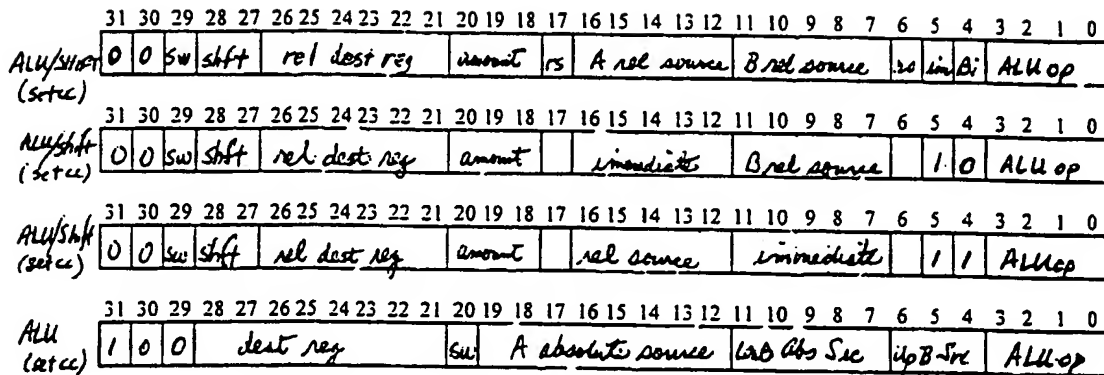 31 30 29 28 27 26 25 24 23 22 21 20 19 18 17 16 15 14 13 12 11 10 9 8 7 6 5 4 3 2 1 0
ALU/Shift 0 0 sw shft rel dest reg amount rs A rel source B rel source im Bi ALU op
(setcc)
31 30 29 28 27 26 25 24 23 22 21 20 19 18 17 16 15 14 13 12 11 10 9 8 7 6 5 4 3 2 1 0
ALU/Shift 0 0 sw shft rel dest reg amount immediate B rel source 1 0 ALU op
(setcc)
31 30 29 28 27 26 25 24 23 22 21 20 19 18 17 16 15 14 13 12 11 10 9 8 7 6 5 4 3 2 1 0
ALU/Shift 0 0 sw shft rel dest reg amount rel source immediate 1 1 ALUop
(setcc)
31 30 29 28 27 26 25 24 23 22 21 20 19 18 17 16 15 14 13 12 11 10 9 8 7 6 5 4 3 2 1 0
ALU 1 0 0 dest reg sw A absolute source B Abs Src B Src ALU op
(setcc)